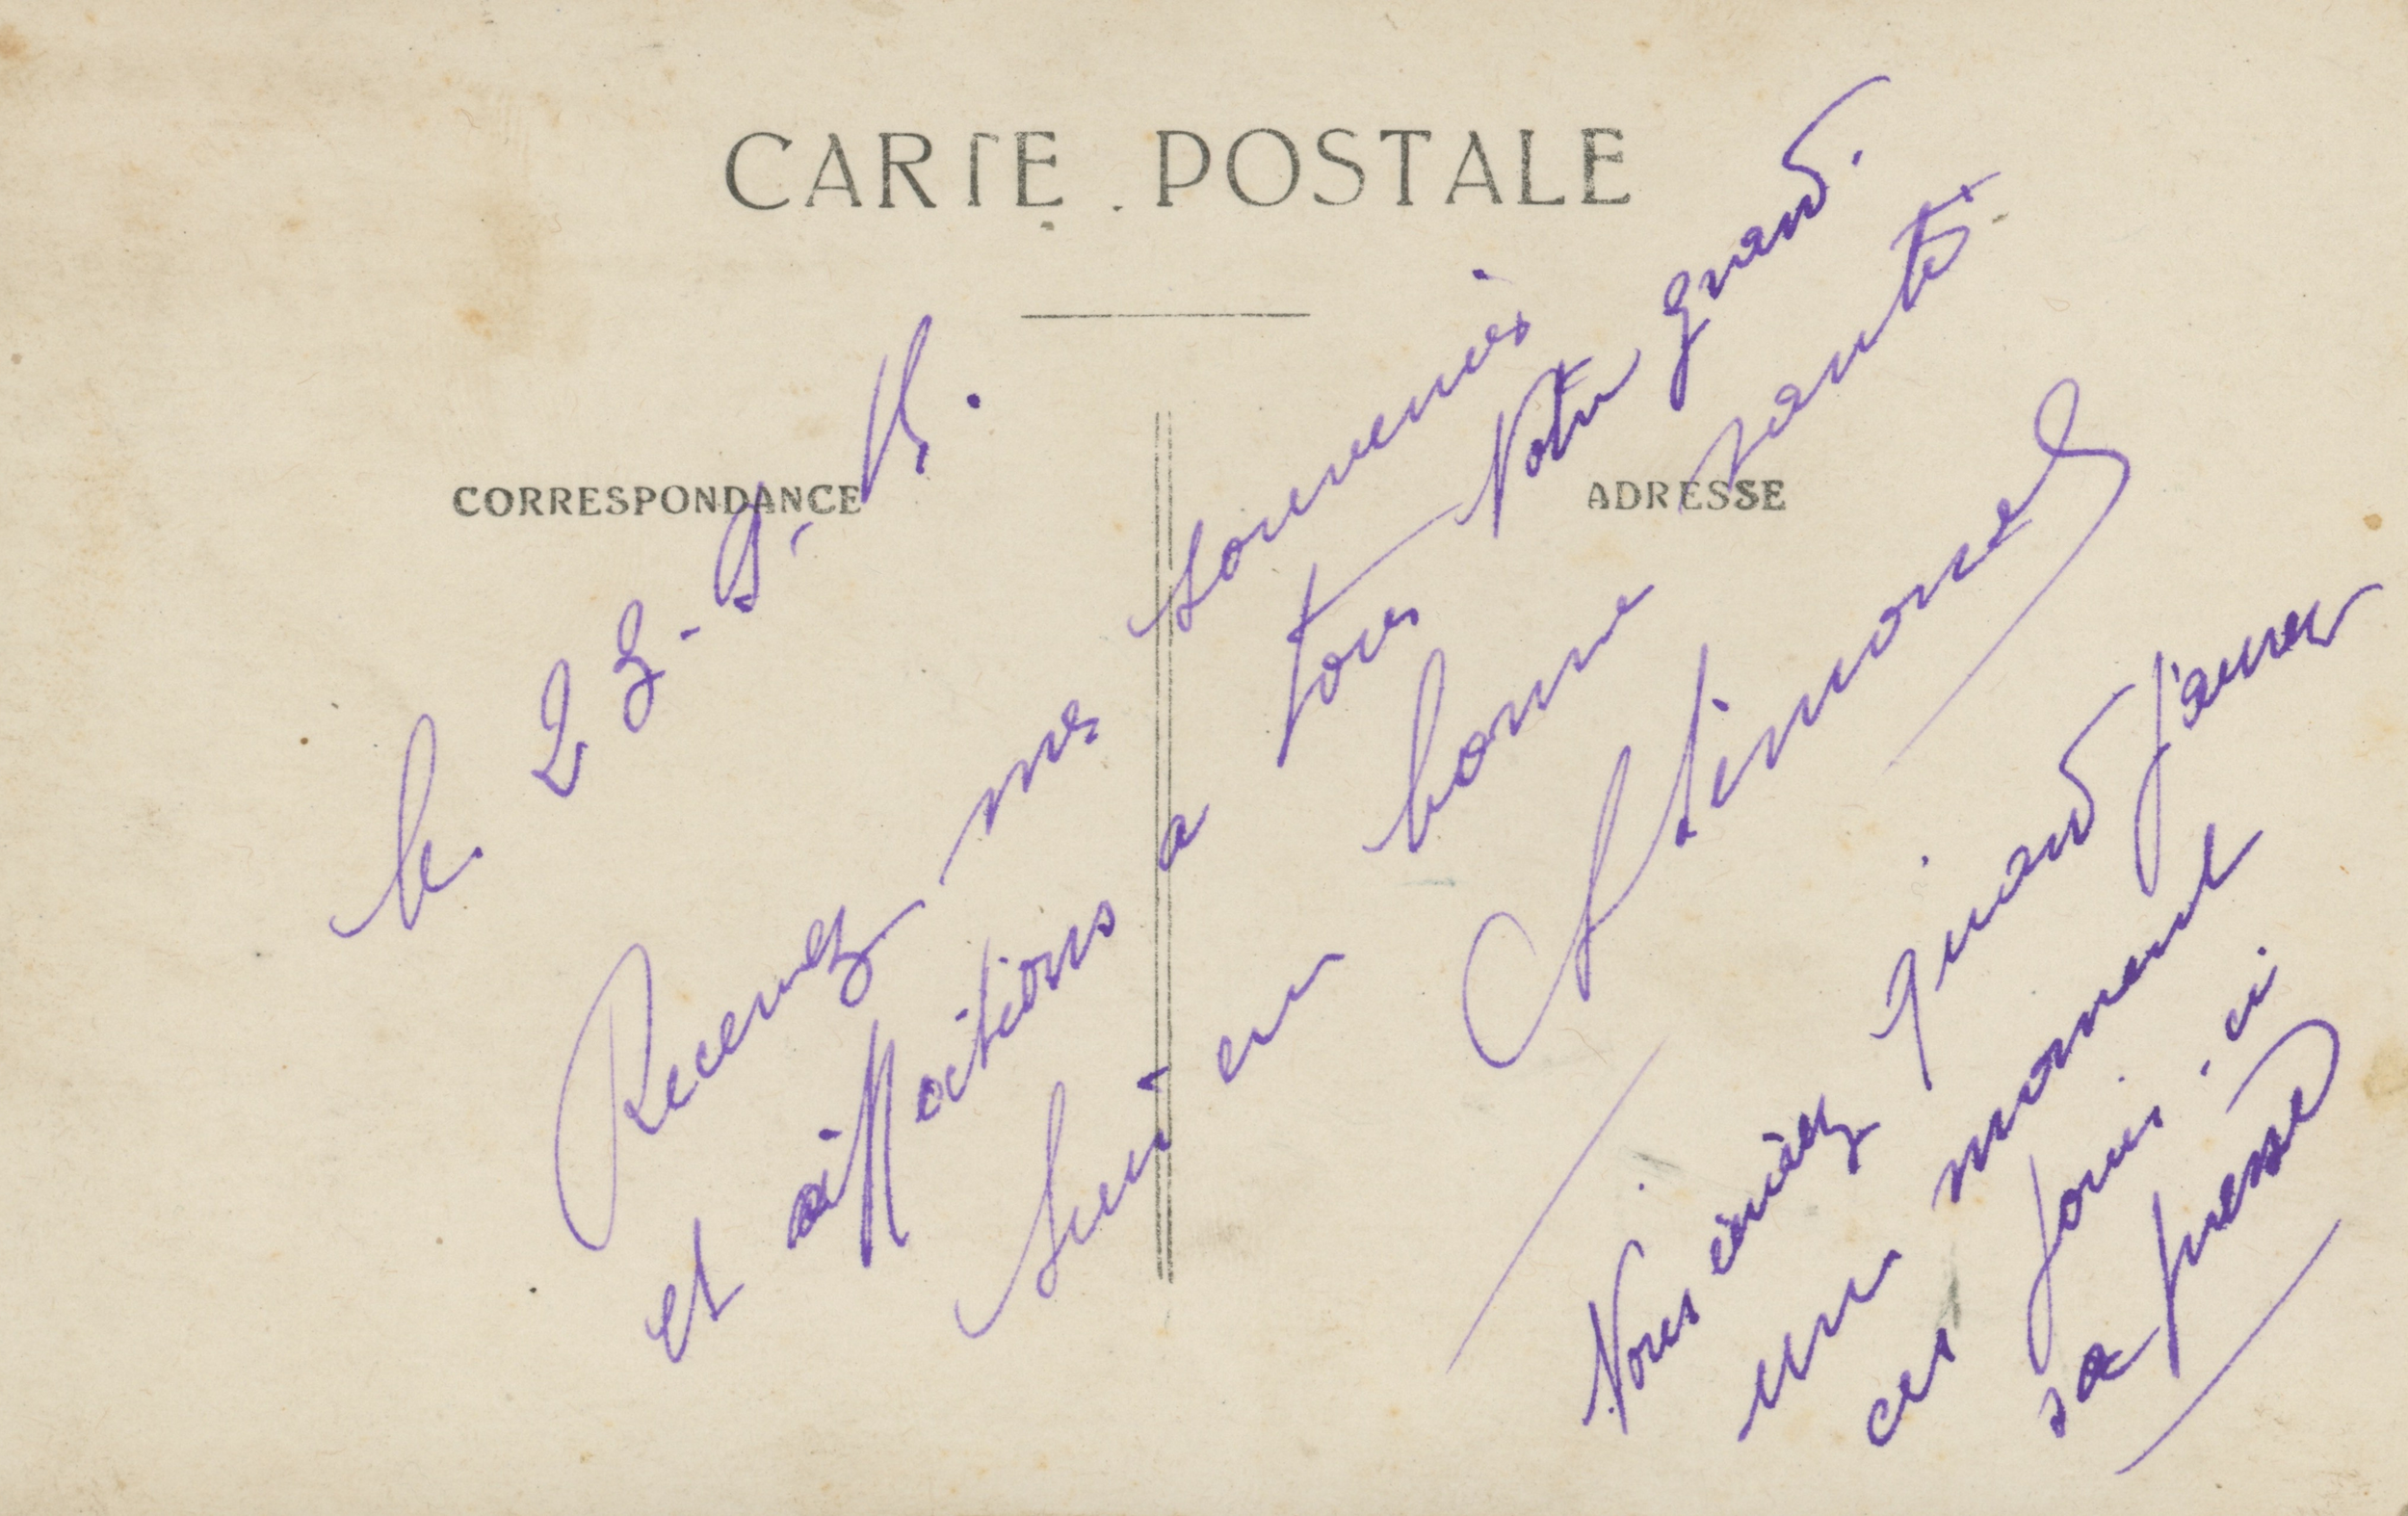 CARTE POSTALE
CORRESPONDANCE
ADRESSE
le 23-9-
Recevez mes souvenirs
et affections a tous Notre grand.
suis en bonne santé.
Simone
Vous écrirez quand j'aurez
un moment
ces jours-ci
sa presse